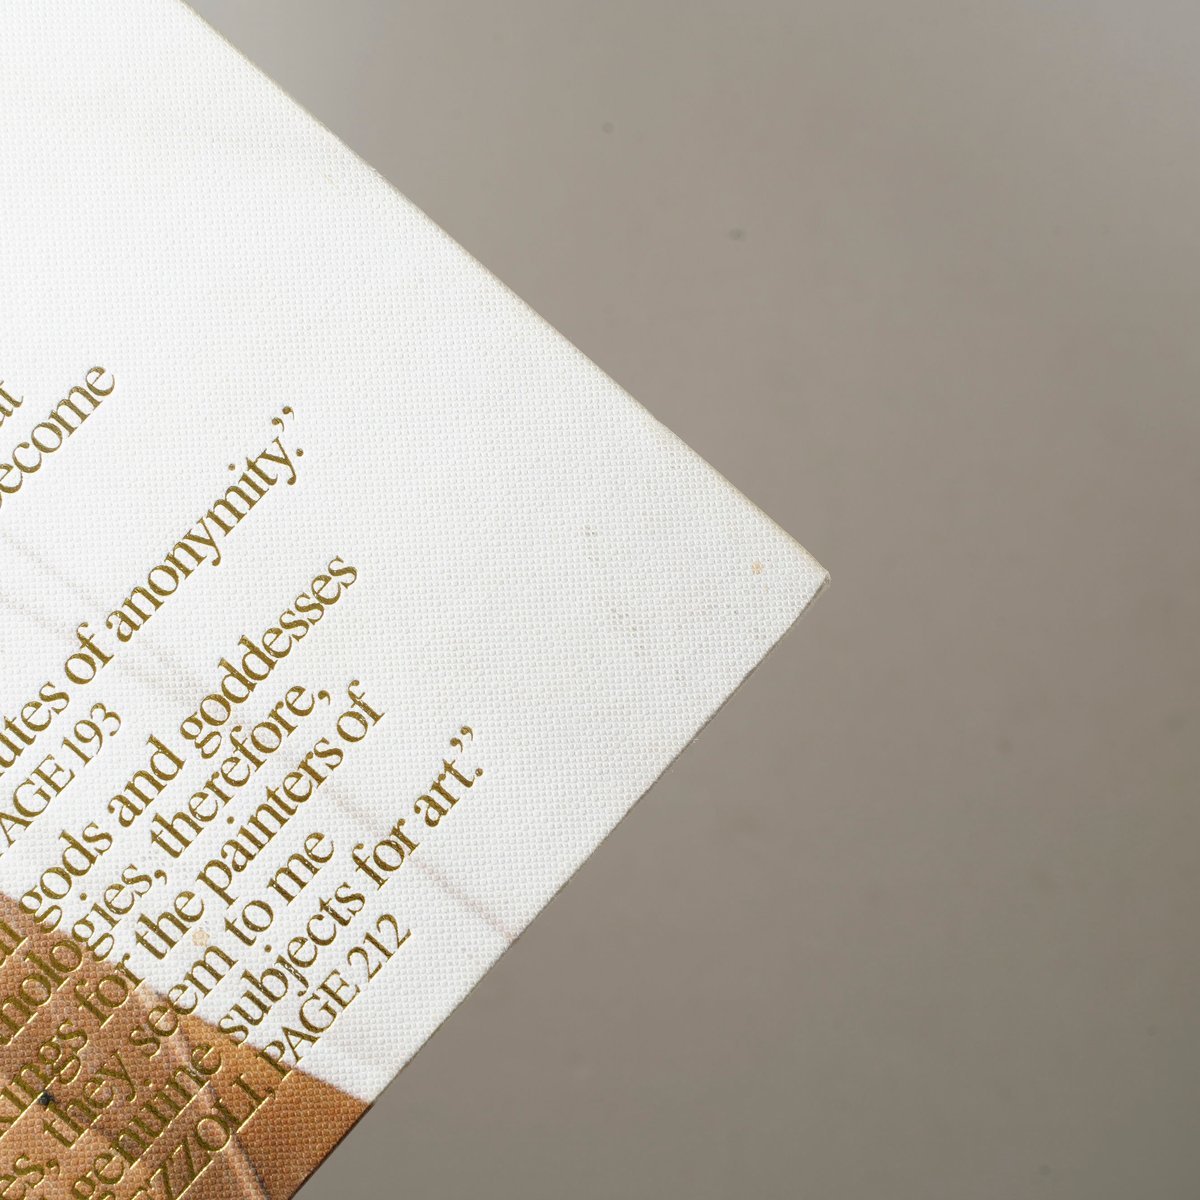 become
of anonymity.”
PAGE 193
gods and goddesses
therefore,
for the painters of
they seem to me
genuine subjects for art.”
PAGE 212